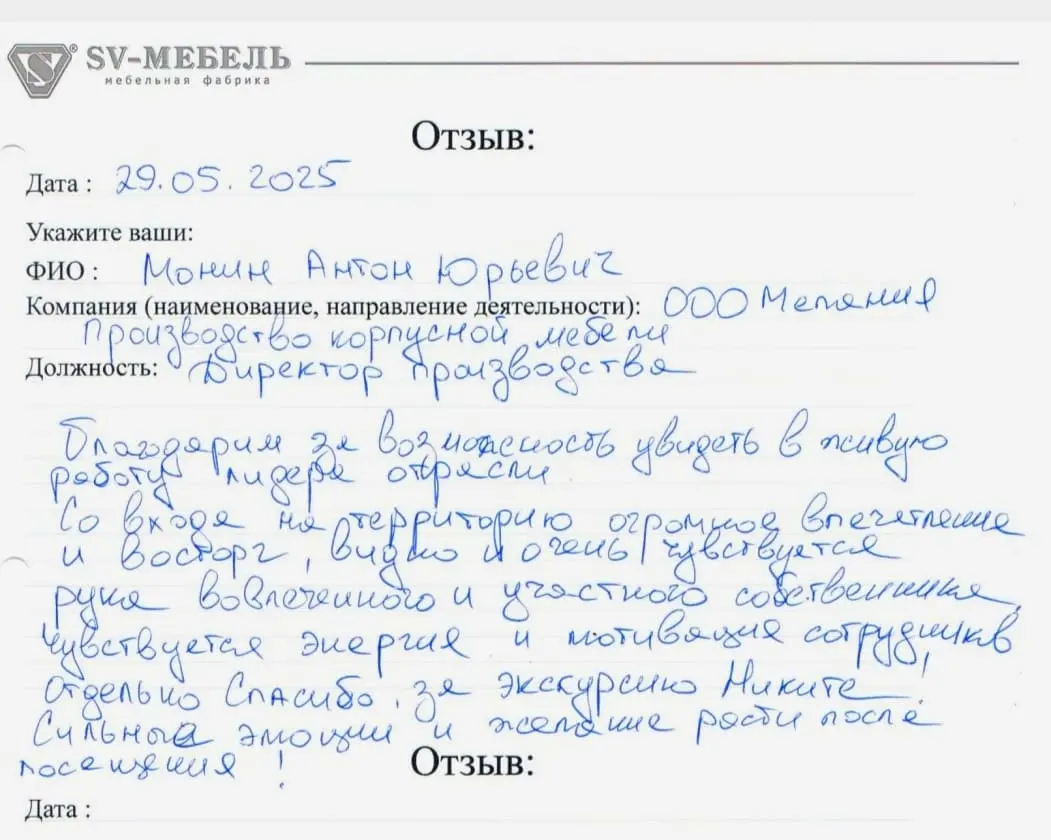 SV-МЕБЕЛЬ
мебельная фабрика
Отзыв:
Дата : 29.05.2025
Укажите ваши:
ФИО : Монин Антон Юрьевич
Компания (наименование, направление деятельности): ООО Мелания
Производство корпусной мебели
Должность: Директор производства
Благодарим за возможность увидеть в живую
работу лидера отрасли
Со входа на территорию огромное впечатление
и восторг, видно и очень чувствуется
рука вовлеченного и участного собственника,
чувствуется энергия и мотивация сотрудников
Отдельно Спасибо, за экскурсию Никите!
Сильные эмоции и желание расти после
посещения!
Отзыв:
Дата :